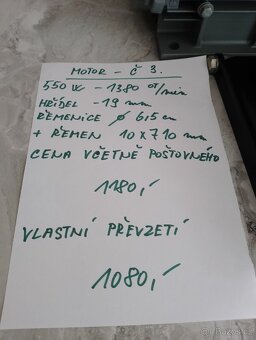 MOTOR - Č 3.
550 W - 1380 OT/min
HŘÍDEL - 19 mm
ŘEMENICE ⌀ 6,5 cm
+ ŘEMEN 10 X 710 mm
CENA VČETNĚ POŠTOVNÉHO
1180,-
VLASTNÍ PŘEVZETÍ
1080,-